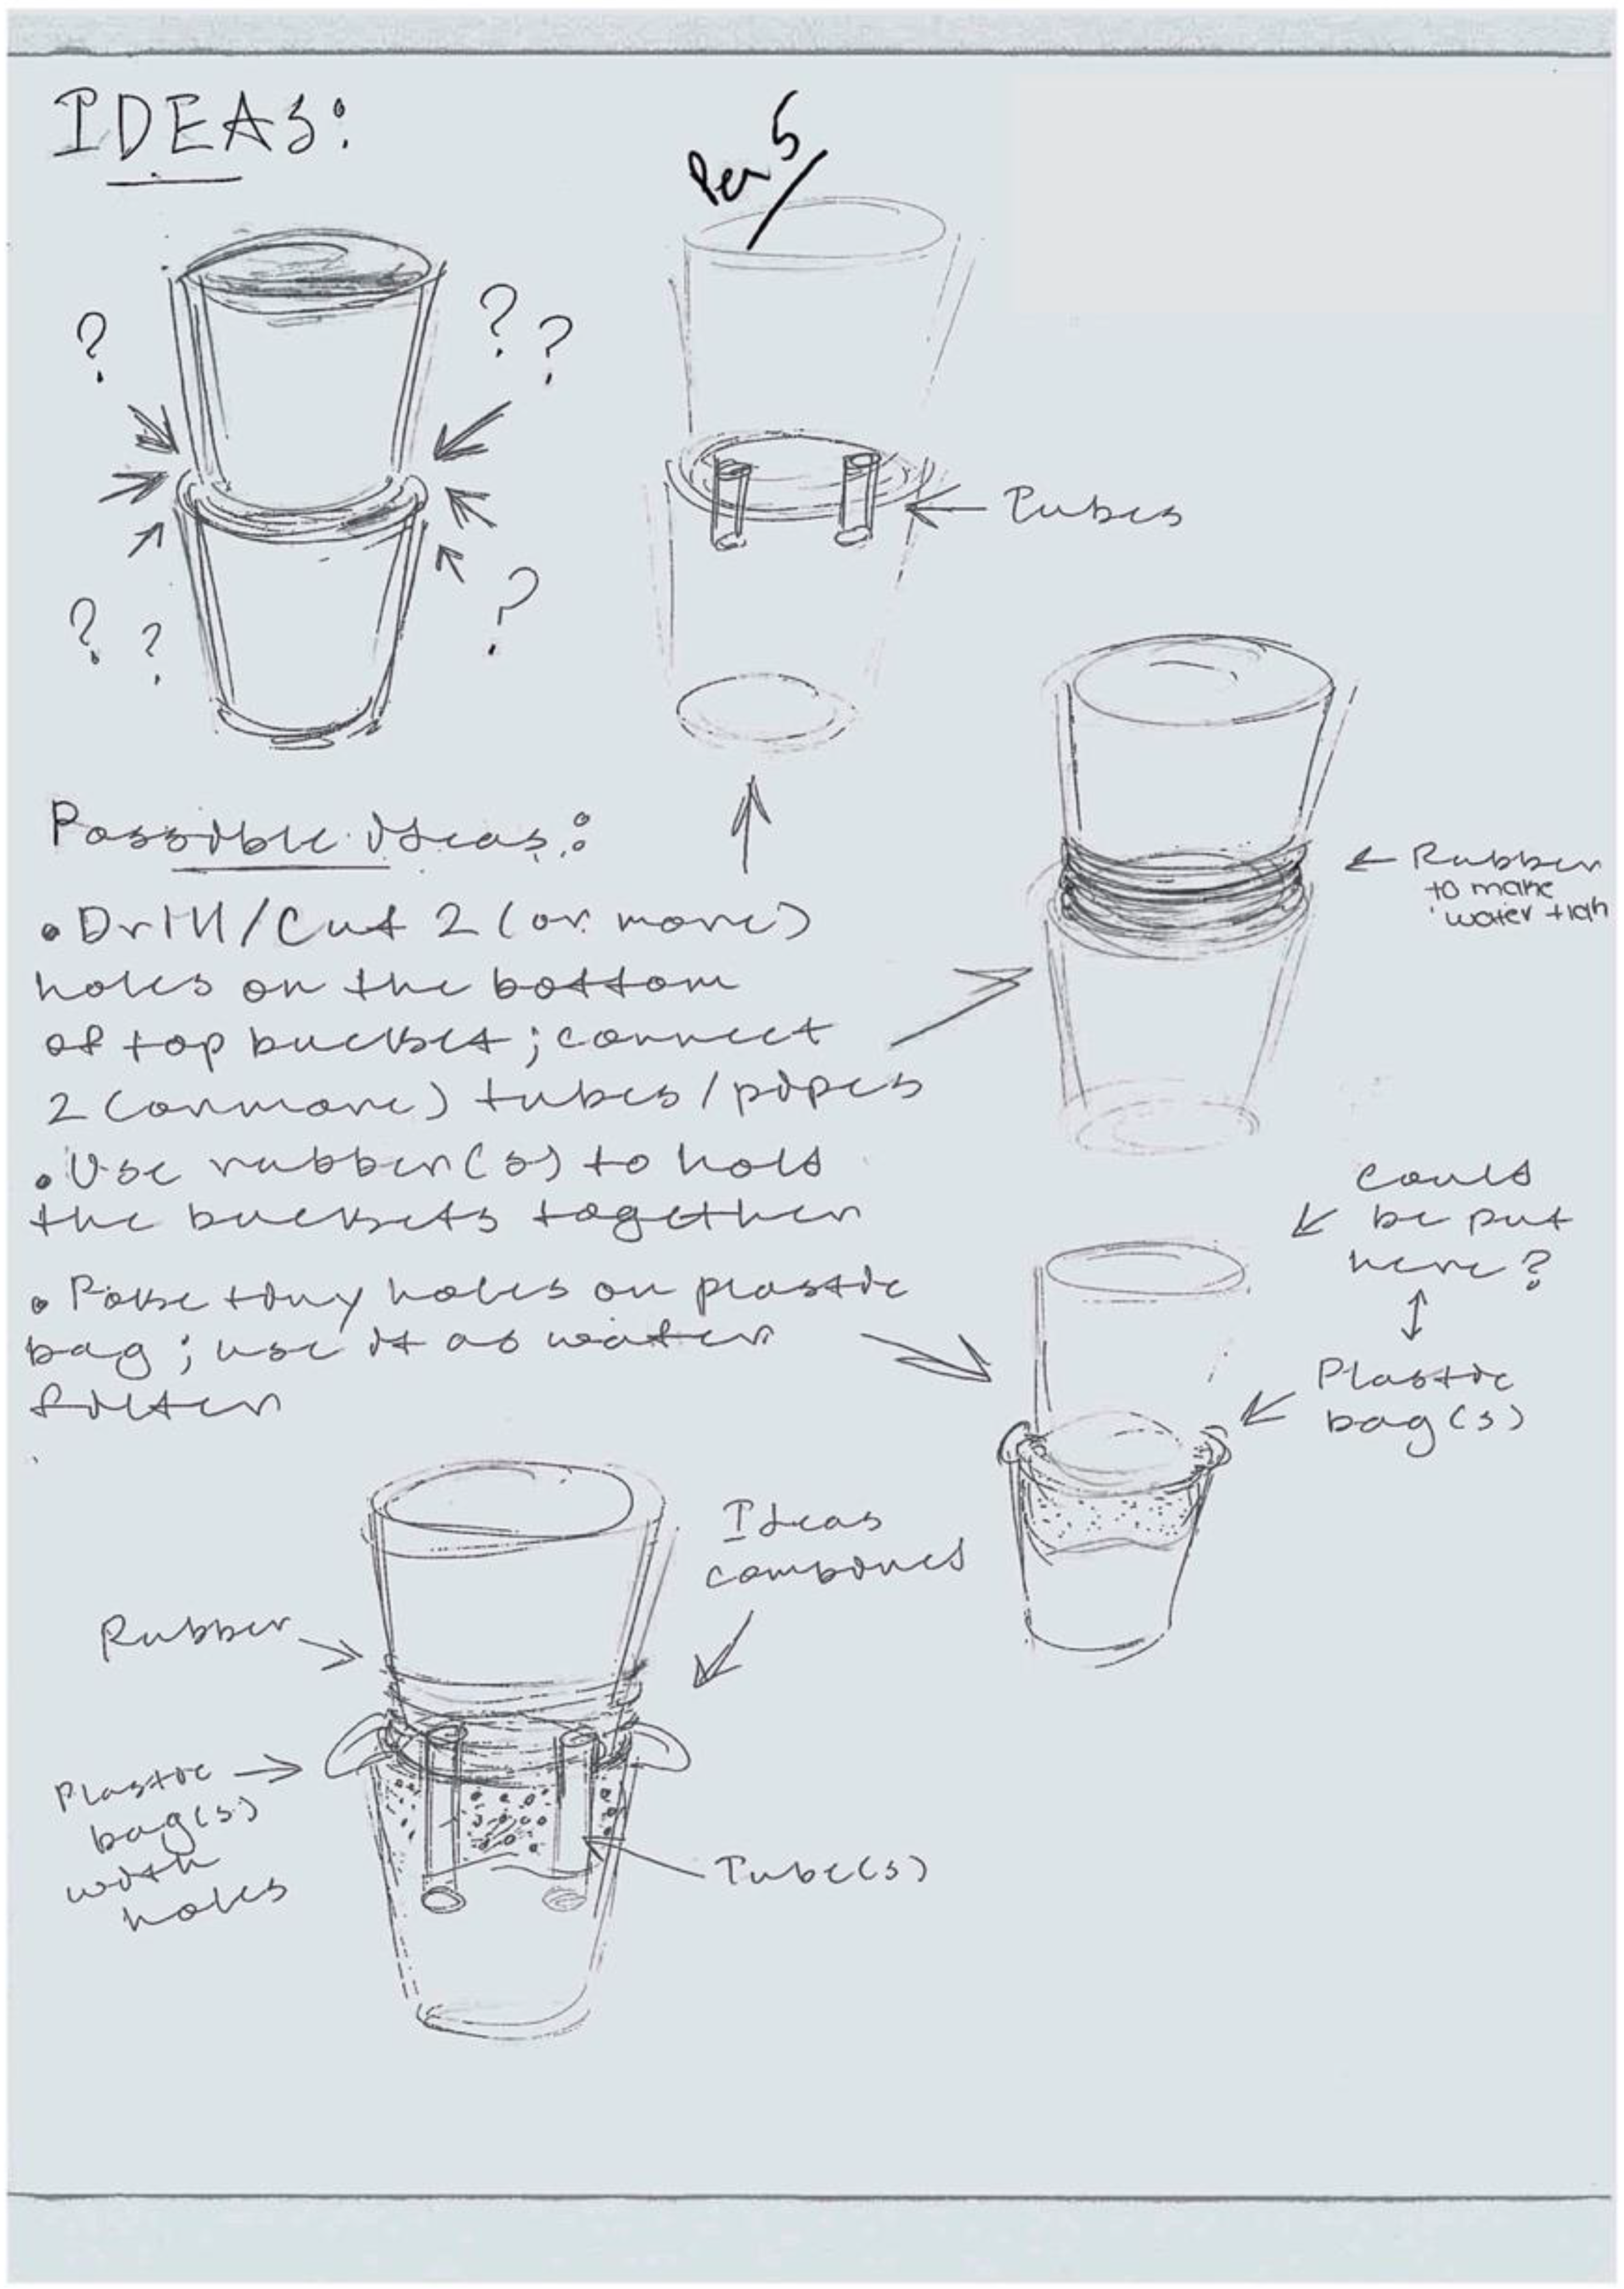 IDEAS:
Per 5
? ? ?
Tubes
? ? ?
Possible ideas:
• Drill/Cut 2 (or more)
holes on the bottom
of top bucket; connect
2 (or more) tubes/pipes
• Use rubber(s) to hold
the buckets together
• Poke tiny holes on plastic
bag; use it as water
filter
← Rubber
to make
water tigh
Could
be put
here?
Plastic
bag(s)
Ideas
combined
Rubber
Plastic
bag(s)
with
holes
Tube(s)